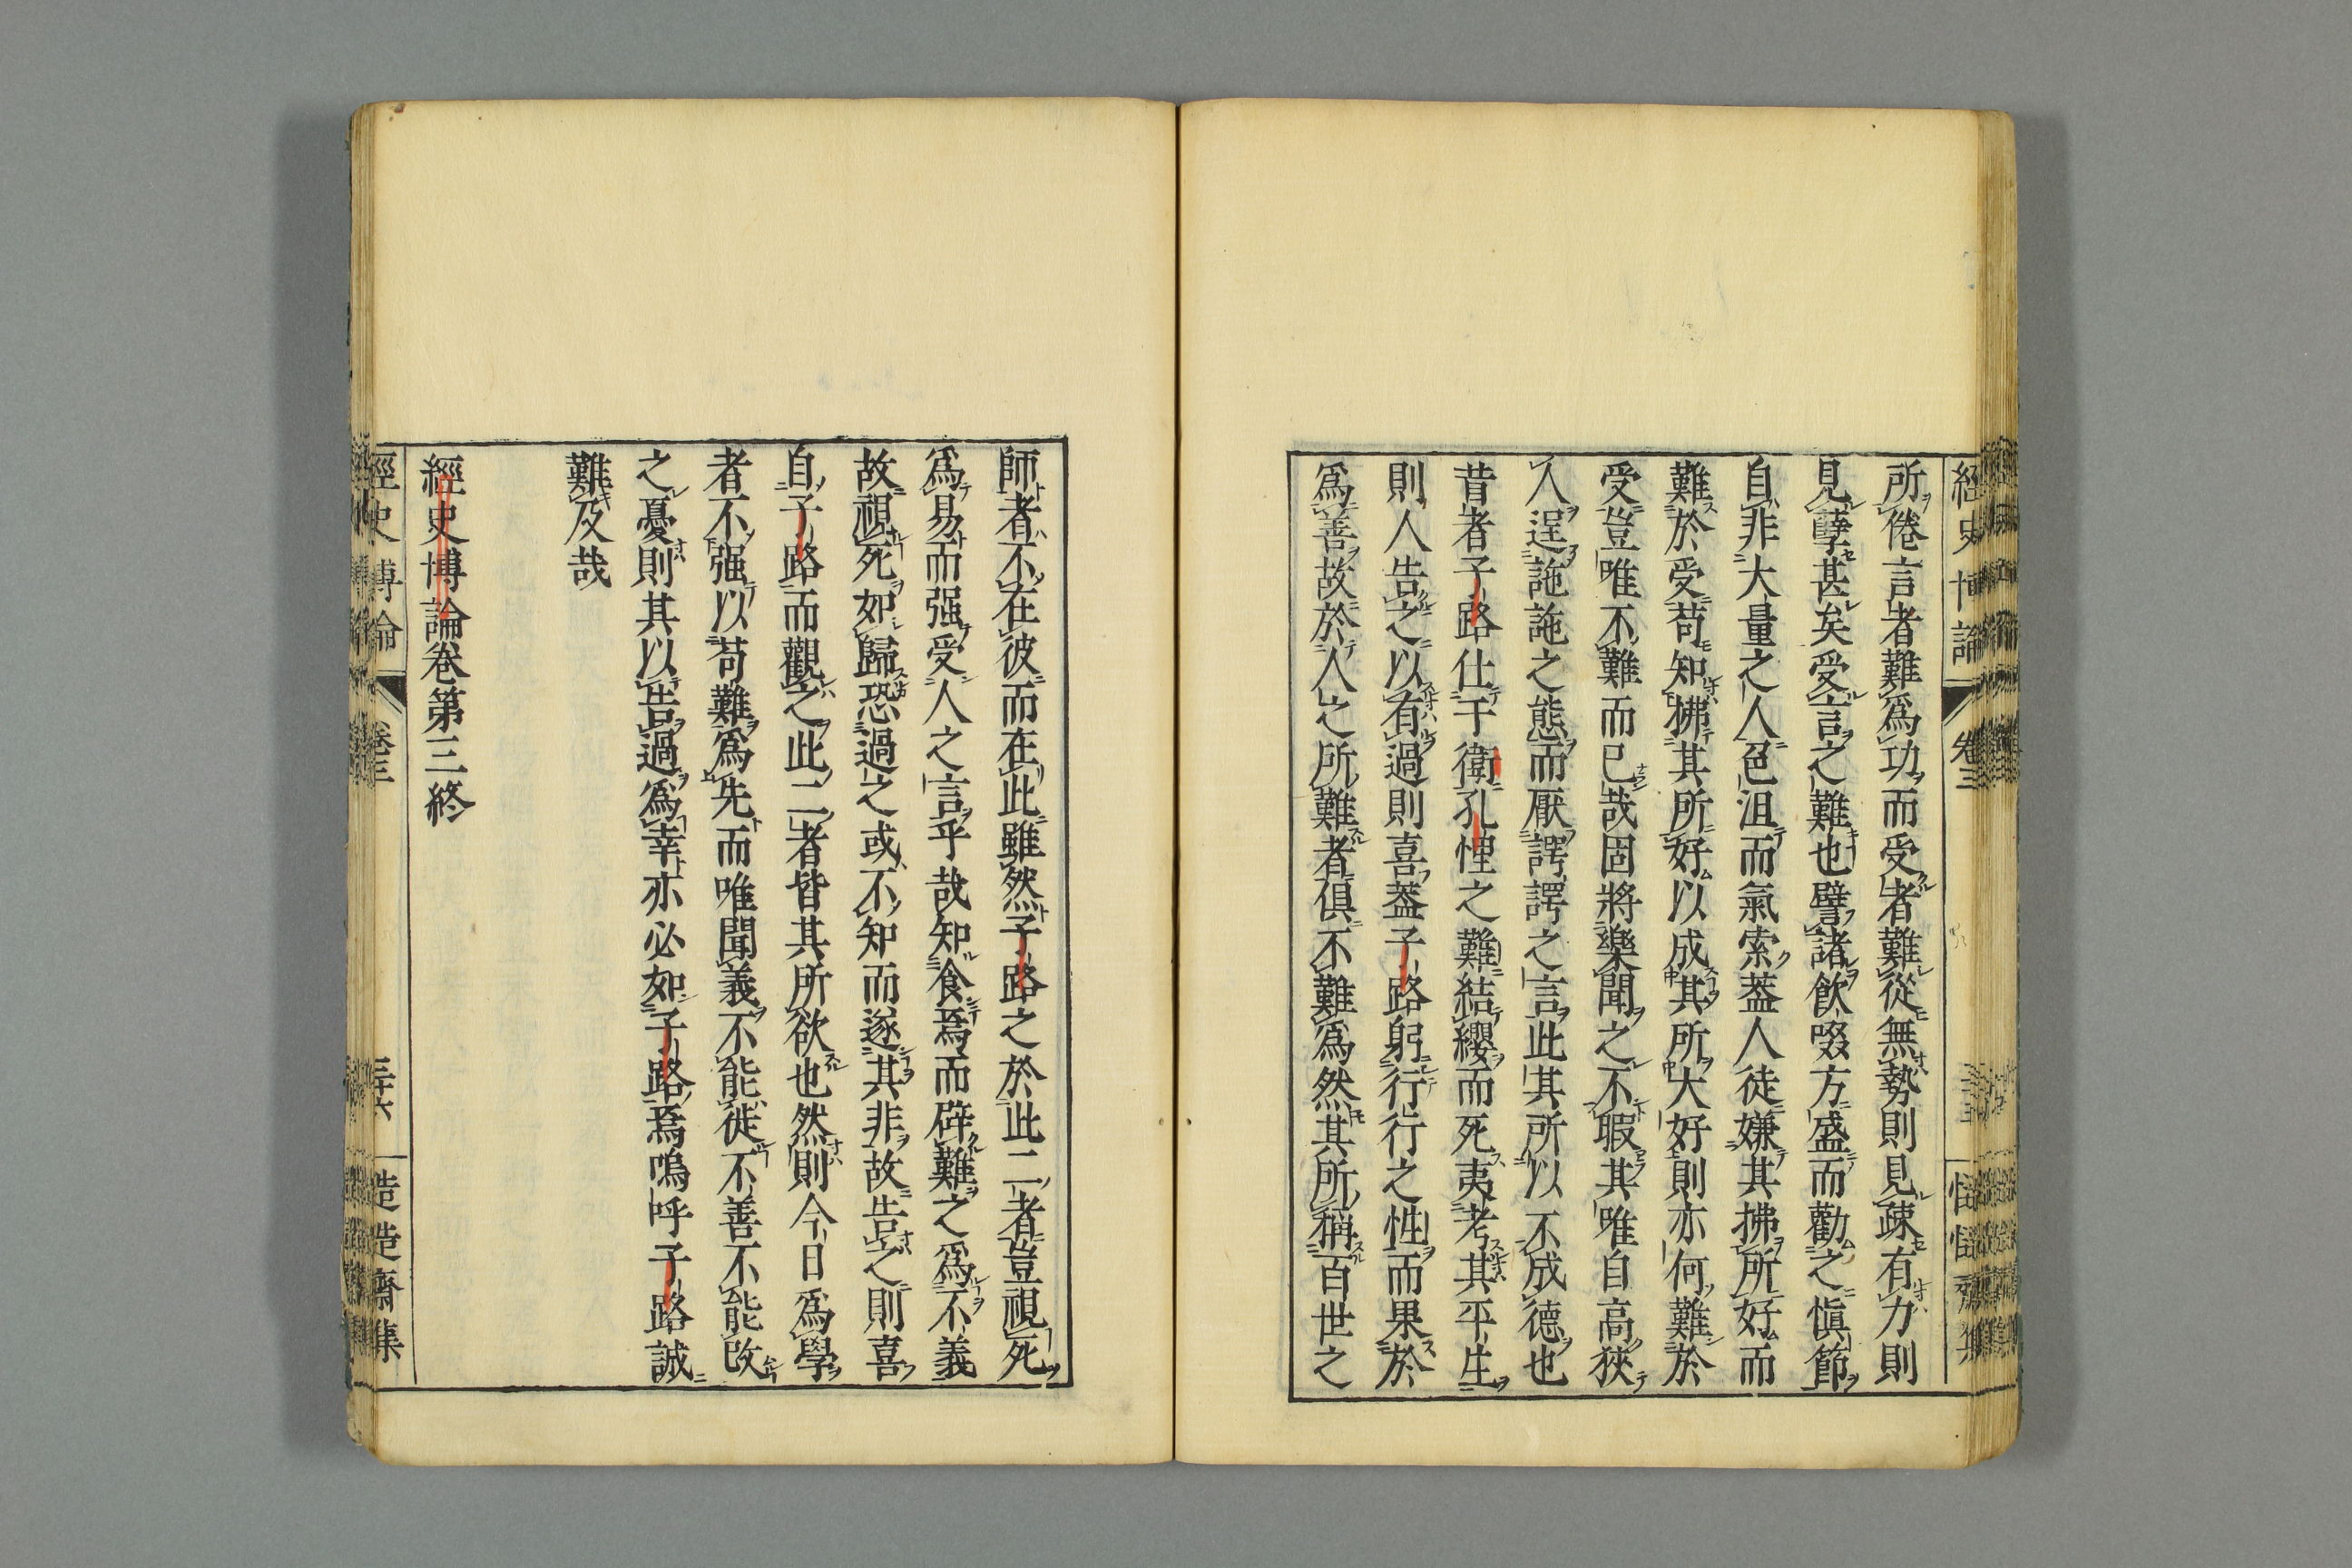 所倦言者難爲功而受者難從無勢則見疎有力則
見孽甚矣受言之難也譬諸飮啜方盛而勸之愼節
自非大量之人色沮而氣索葢人徒嫌其拂所好而
難於受苟知拂其所好以成其所大好則亦何難於
受豈唯不難而已哉固將樂聞之不暇其唯自高狹
人逞訑訑之態而厭諤諤之言此其所以不成德也
昔者子路仕于衛孔悝之難結纓而死夷考其平生
則人告之以有過則喜葢子路躬行行之性而果於
爲善故於人之所難者俱不難爲然其所稱百世之
師者不在彼而在此雖然子路之於此二者豈視死
爲易而强受人之言乎哉知食焉而辟難之爲不義
故視死如歸恐過之或不知而遂其非故告之則喜
自子路而觀之此二者皆其所欲也然則今日爲學
者不强以苟難爲先而唯聞義不能徙不善不能改
之憂則其以告過爲幸亦必如子路焉嗚呼子路誠
難及哉
經史博論卷第三終
經史博論 卷三 三十六 造造齋集